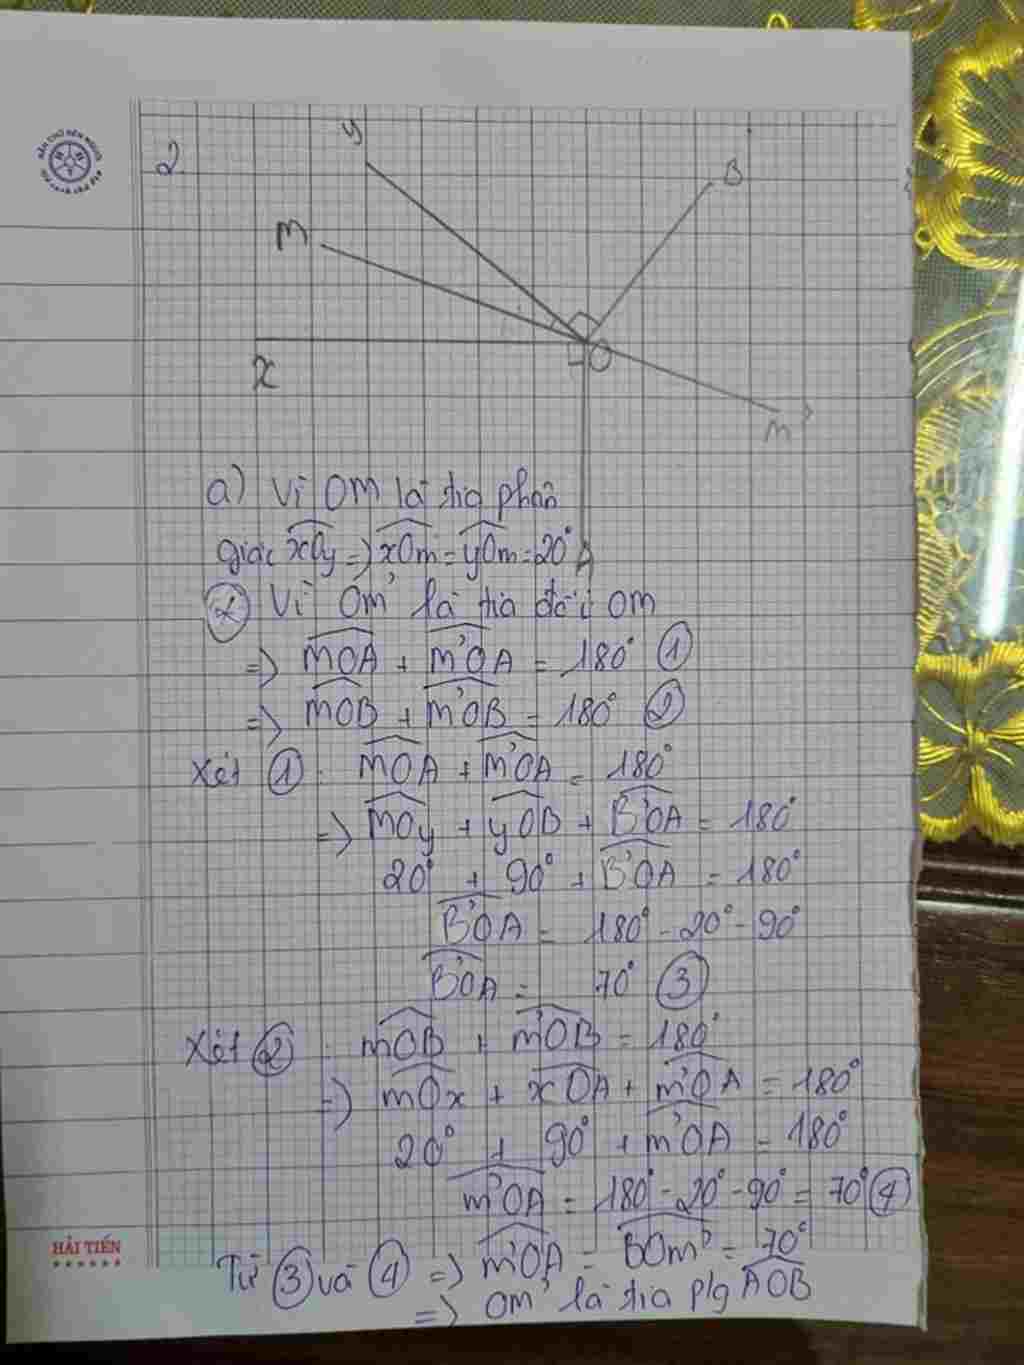 2.
y
B
m
x
O
m'
a) Vì Om là tia phân
giác xOy => xOm = yOm = 20°
A
Vì Om' là tia đối Om
=> mOA + m'OA = 180° ①
=> mOB + m'OB = 180° ②
Xét ①: mOA + m'OA = 180°
=> mOy + yOB + B'OA = 180°
20° + 90° + B'OA = 180°
B'OA = 180° - 20° - 90°
B'OA = 70° ③
Xét ②: mOB + m'OB = 180°
=> mOx + xOA + m'OA = 180°
20° + 90° + m'OA = 180°
m'OA = 180° - 20° - 90° = 70° ④
HẢI TIẾN
Từ ③ và ④ => m'OA = BOm' = 70°
=> Om' là tia p/g AOB